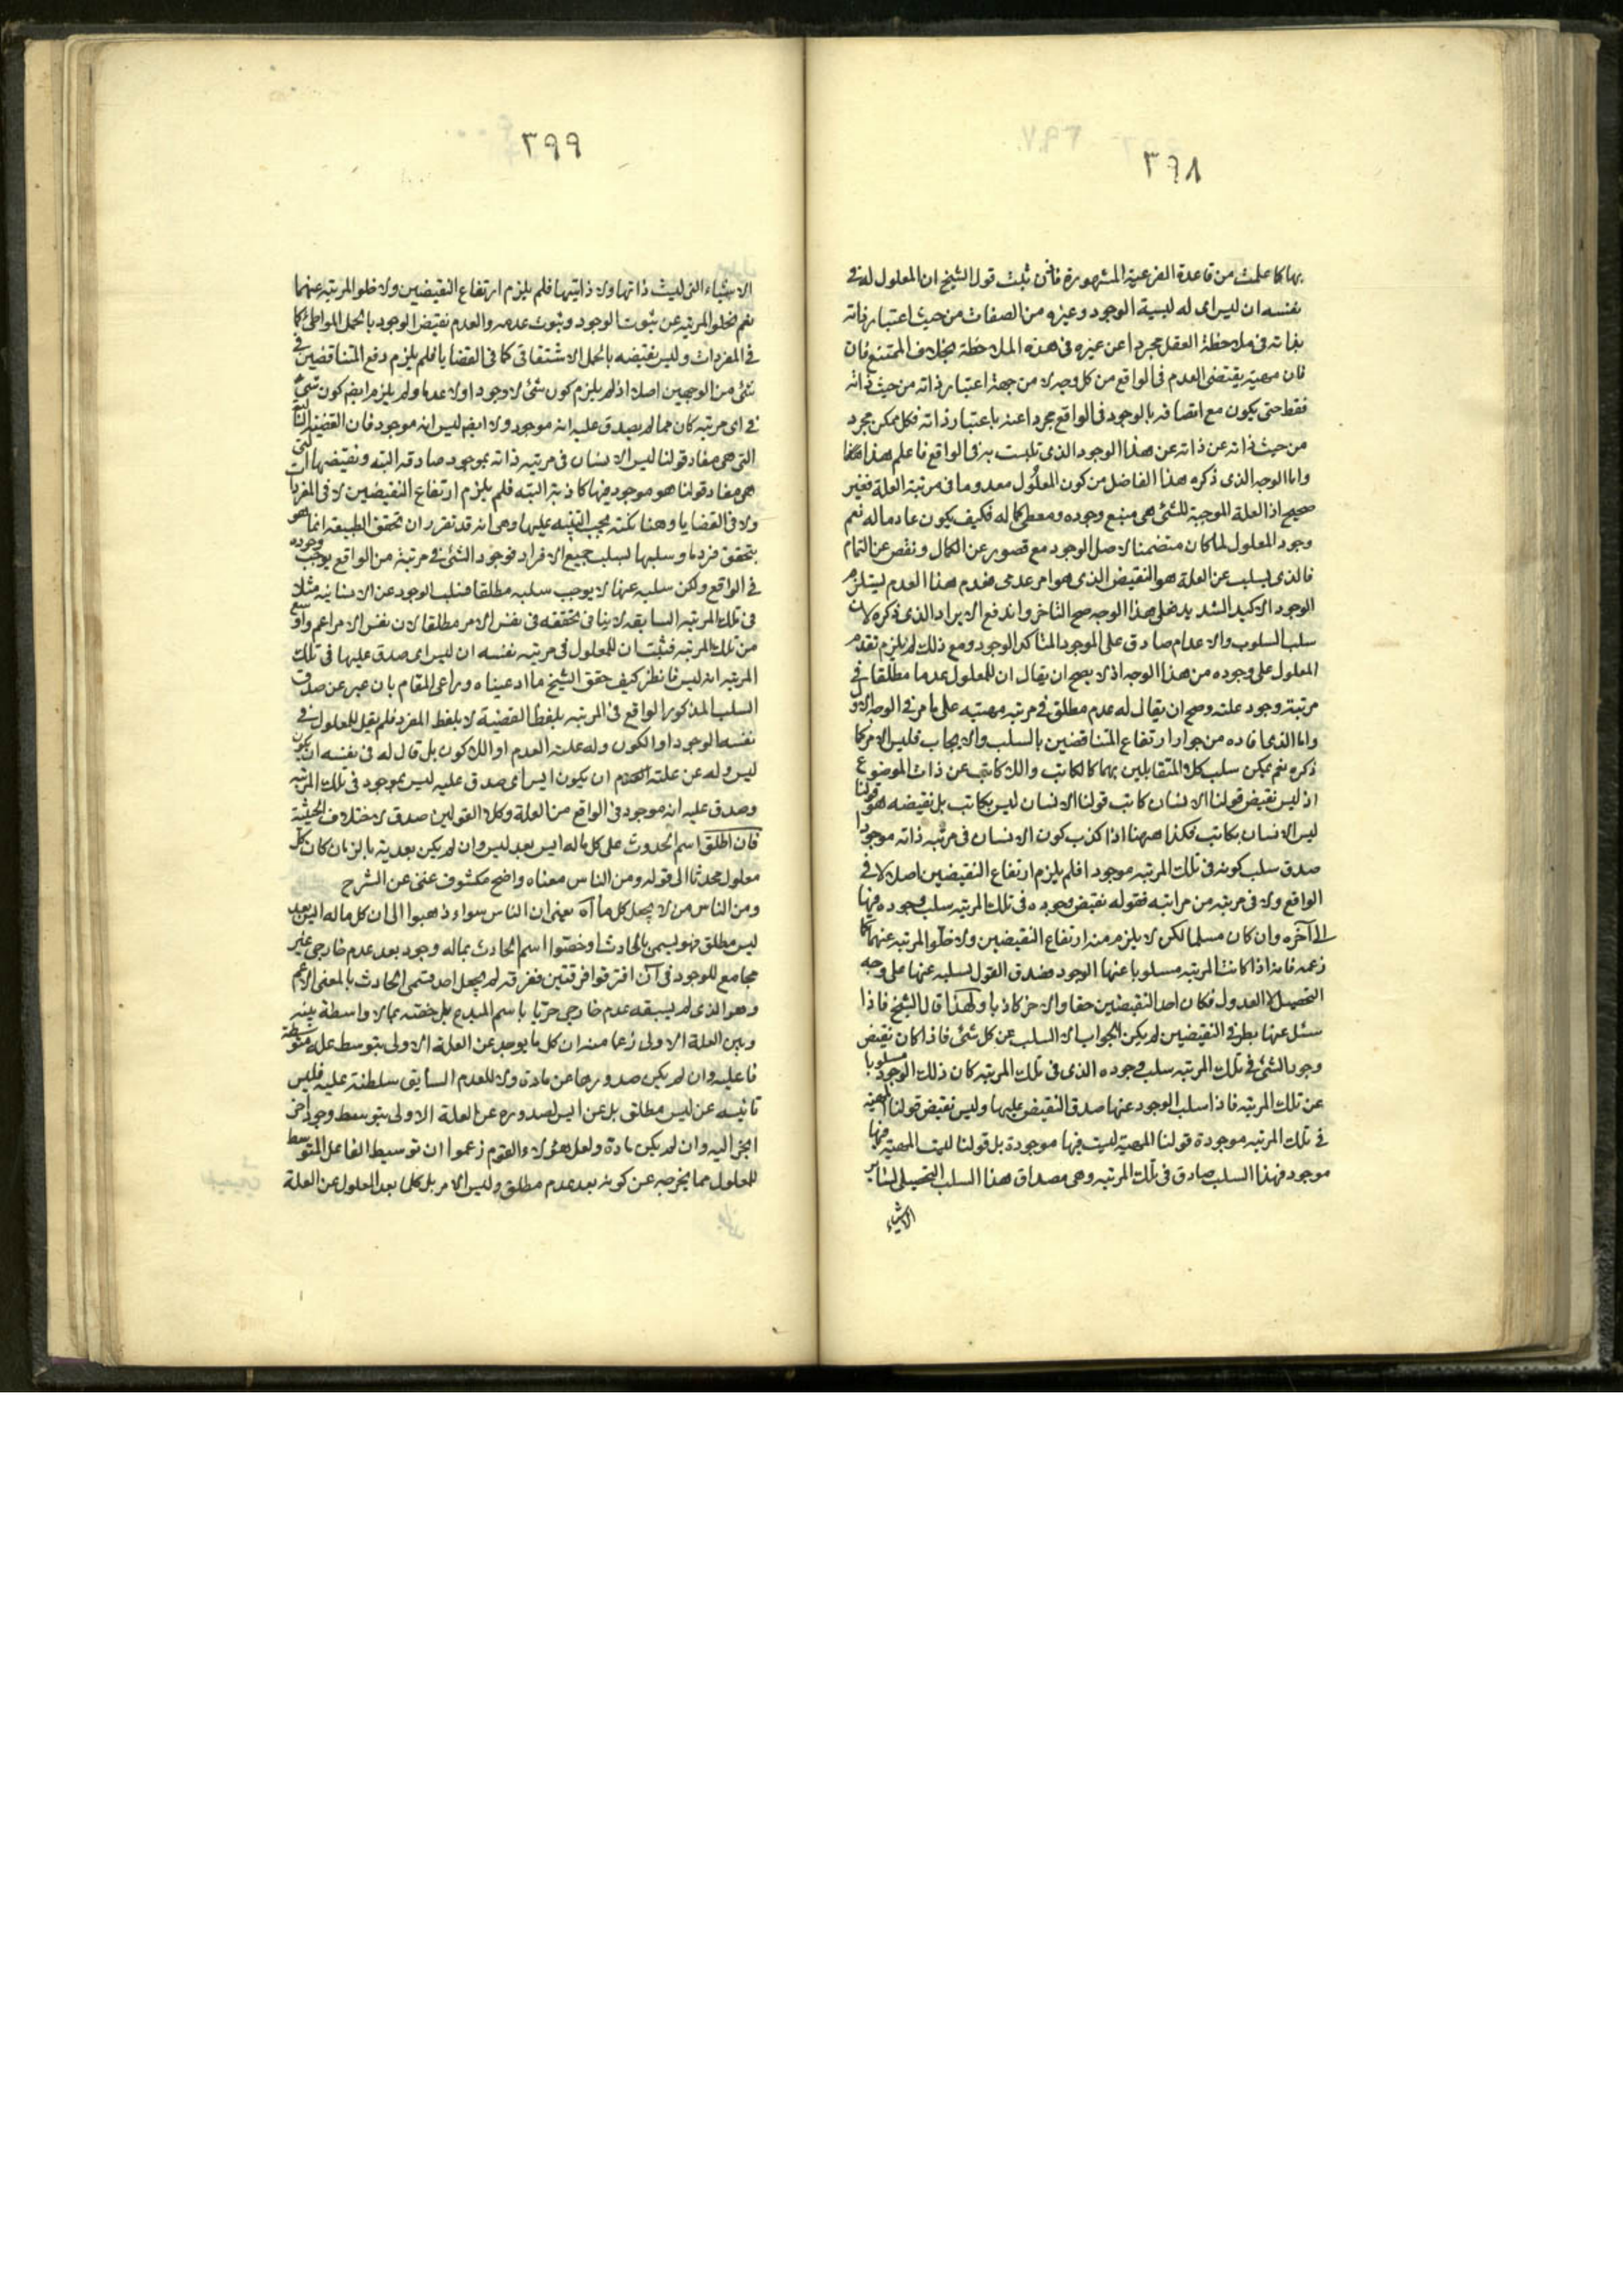 ٣٩٨
بها كما علمت من قاعدة الفرعية المشهورة فاذن ثبت قول الشيخ ان المعلول له في
نفسه ان ليس اى له ليسية الوجود وغيره من الصفات من حيث اعتبار ذاته
بذاته فى ملاحظة العقل مجردا عن غيره فى هذه الملاحظة بخلاف الممتنع فان
فان مهيته يقتضى العدم فى الواقع من كل وجه لا من جهة اعتبار ذاته من حيث ذاته
فقط حتى يكون مع اتصافه بالوجود فى الواقع مجردا عنه باعتبار ذاته فكل ممكن مجرد
من حيث ذاته عن ذاته عن هذا الوجود الذى تلبست به فى الواقع فاعلم هذا هكذا
واما الوجه الذى ذكره هذا الفاضل من كون المعلول معدوما فى مرتبة العلة فغير
صحيح اذ العلة الموجبة للشئ هى منبع وجوده ومعطى كماله فكيف يكون عادما له نعم
وجود المعلول لما كان متضمنا لاصل الوجود مع قصور عن الكمال ونقص عن التمام
فالذى يسلب عن العلة هو النقيض الذى هو امر عدمى فعدم هذا العدم يستلزم
الوجود الاكيد الشديد فعلى هذا الوجه صح التاخر واندفع الايراد الذى ذكره لان
سلب السلوب والاعدام صادق على الموجود المتاكد الوجود ومع ذلك لم يلزم تقدم
المعلول على وجوده من هذا الوجه اذ لا يصح ان يقال ان للمعلول عدما مطلقا فى
مرتبة وجود علته وصح ان يقال له عدم مطلق فى مرتبة مهيته على ما مر فى الوجه الاول
واما الذى افاده من جواز ارتفاع المتناقضين بالسلب والايجاب فليس الامر كما
ذكره نعم يمكن سلب كلا المتقابلين بهما كالكاتب واللا كاتب عن ذات الموضوع
اذ ليس نقيض قولنا الانسان كاتب قولنا الانسان ليس بكاتب بل نقيضه هو قولنا
ليس الانسان بكاتب فكذا ههنا اذا كذب كون الانسان فى مرتبة ذاته موجودا
صدق سلب كونه فى تلك المرتبه موجودا فلم يلزم ارتفاع النقيضين اصلا لا فى
الواقع ولا فى مرتبه من مراتبه فقوله نقيض وجوده فى تلك المرتبه سلب وجوده فيها
الى آخره وان كان مسلما لكن لا يلزم منه ارتفاع النقيضين ولا خلو المرتبه عنهما كما
زعمه فانه اذا كانت المرتبه مسلوبا عنها الوجود فصدق القول بسلبه عنها على وجه
التحصيل لا العدول فكان احد النقيضين حقا والاخر كاذبا ولهذا قال الشيخ فاذا
سئل عنها بطرفى النقيضين لم يكن الجواب الا السلب عن كل شئ فاذا كان نقيض
وجود الشئ فى تلك المرتبه سلب وجوده الذى فى تلك المرتبه كان ذلك الوجود مسلوبا
عن تلك المرتبه فاذا سلب الوجود عنها صدق النقيض عليها وليس نقيض قولنا المهية
فى تلك المرتبه موجودة قولنا المهية ليست فيها موجودة بل قولنا ليست المهية فيها
موجود فهذا السلب صادق فى تلك المرتبه وهى مصداق هذا السلب التحصيلى لسائر
الاشياء
٣٩٩
الاشياء التى ليست ذاتها ولا ذاتيتها فلم يلزم ارتفاع النقيضين ولا خلو المرتبه عنهما
نعم تخلو المرتبه عن ثبوت الوجود وثبوت عدمه والعدم نقيض الوجود بالحمل المواطئ كما
فى المفردات وليس نقيضه بالحمل الاشتقاقى كما فى القضايا فلم يلزم دفع المتناقضين فى
شئ من الوجهين اصلا اذ لم يلزم كون شئ لا وجودا ولا عدما ولم يلزم ايضم كون شئ
فى اى مرتبه كان مما لم يصدق عليه انه موجود ولا ايضم ليس انه موجود فان القضية السالبة
التى هى مفاد قولنا ليس الانسان فى مرتبه ذاته بموجود صادقه البته ونقيضها التى
هى مفاد قولنا هو موجود فيها كاذبة البته فلم يلزم ارتفاع النقيضين لا فى المفردات
ولا فى القضايا وهنا نكته يجب التنبيه عليها وهى انه قد تقرر ان تحقق الطبيعة انما هو
بتحقق فرد ما وسلبها بسلب جميع الافراد فوجود الشئ فى مرتبة من الواقع يوجب وجوده
فى الواقع ولكن سلبه عنها لا يوجب سلبه مطلقا فسلب الوجود عن الانسانيه مثلا
فى تلك المرتبه السابقه لا ينافى تحققه فى نفس الامر مطلقا لان نفس الامر اعم واوسع
من تلك المرتبه فثبت ان للمعلول فى مرتبه نفسه ان ليس اى صدق عليها فى تلك
المرتبه انه ليس فانظر كيف حقق الشيخ ما ادعيناه وراعى المقام بان عبر عن صدق
السلب المذكور الواقع فى المرتبه بلفظ القضية لا بلفظ المفرد فلم يقل للمعلول فى
نفسه الوجود او الكون وله علته العدم او اللاكون بل قال له فى نفسه ان يكون
ليس وله عن علته ان يكون ايس اى صدق عليه ليس بموجود فى تلك المرتبه
وصدق عليه انه موجود فى الواقع من العلة وكلا القولين صدق لاختلاف الحيثية
فان اطلق اسم الحدوث على كل ماله ايس بعد ليس وان لم يكن بعدية بالزمان كان كل
معلول محدثا الى قوله ومن الناس معناه واضح مكشوف غنى عن الشرح
ومن الناس من لا يجعل كل ما آه يعنى ان الناس سواء ذهبوا الى ان كل ماله ايس بعد
ليس مطلق فهو يسمى بالحادث او خصوا اسم الحادث بماله وجود بعد عدم خارجى غير
مجامع للوجود فى آن افترقوا فرقتين ففرقه لم يجعل احد قسمى الحادث بالمعنى الاعم
وهو الذى لم يسبقه عدم خارجى حريا باسم المبدع بل خصته بما لا واسطة بينه
وبين العلة الاولى زعما منه ان كل ما يوجد عن العلة الاولى بتوسط علة متوسطة
فاعليه وان لم يكن صدورها عن مادة ولا للعدم السابق سلطنة عليه فليس
تانيسه عن ليس مطلق بل عن ايس لصدوره عن العلة الاولى بتوسط وجود اخر
انجر اليه وان لم يكن مادة ولعل هؤلاء القوم زعموا ان توسيط الفاعل المتوسط
للمعلول مما يخرجه عن كونه بعد عدم مطلق وليس الامر بل كلما بعد المعلول عن العلة